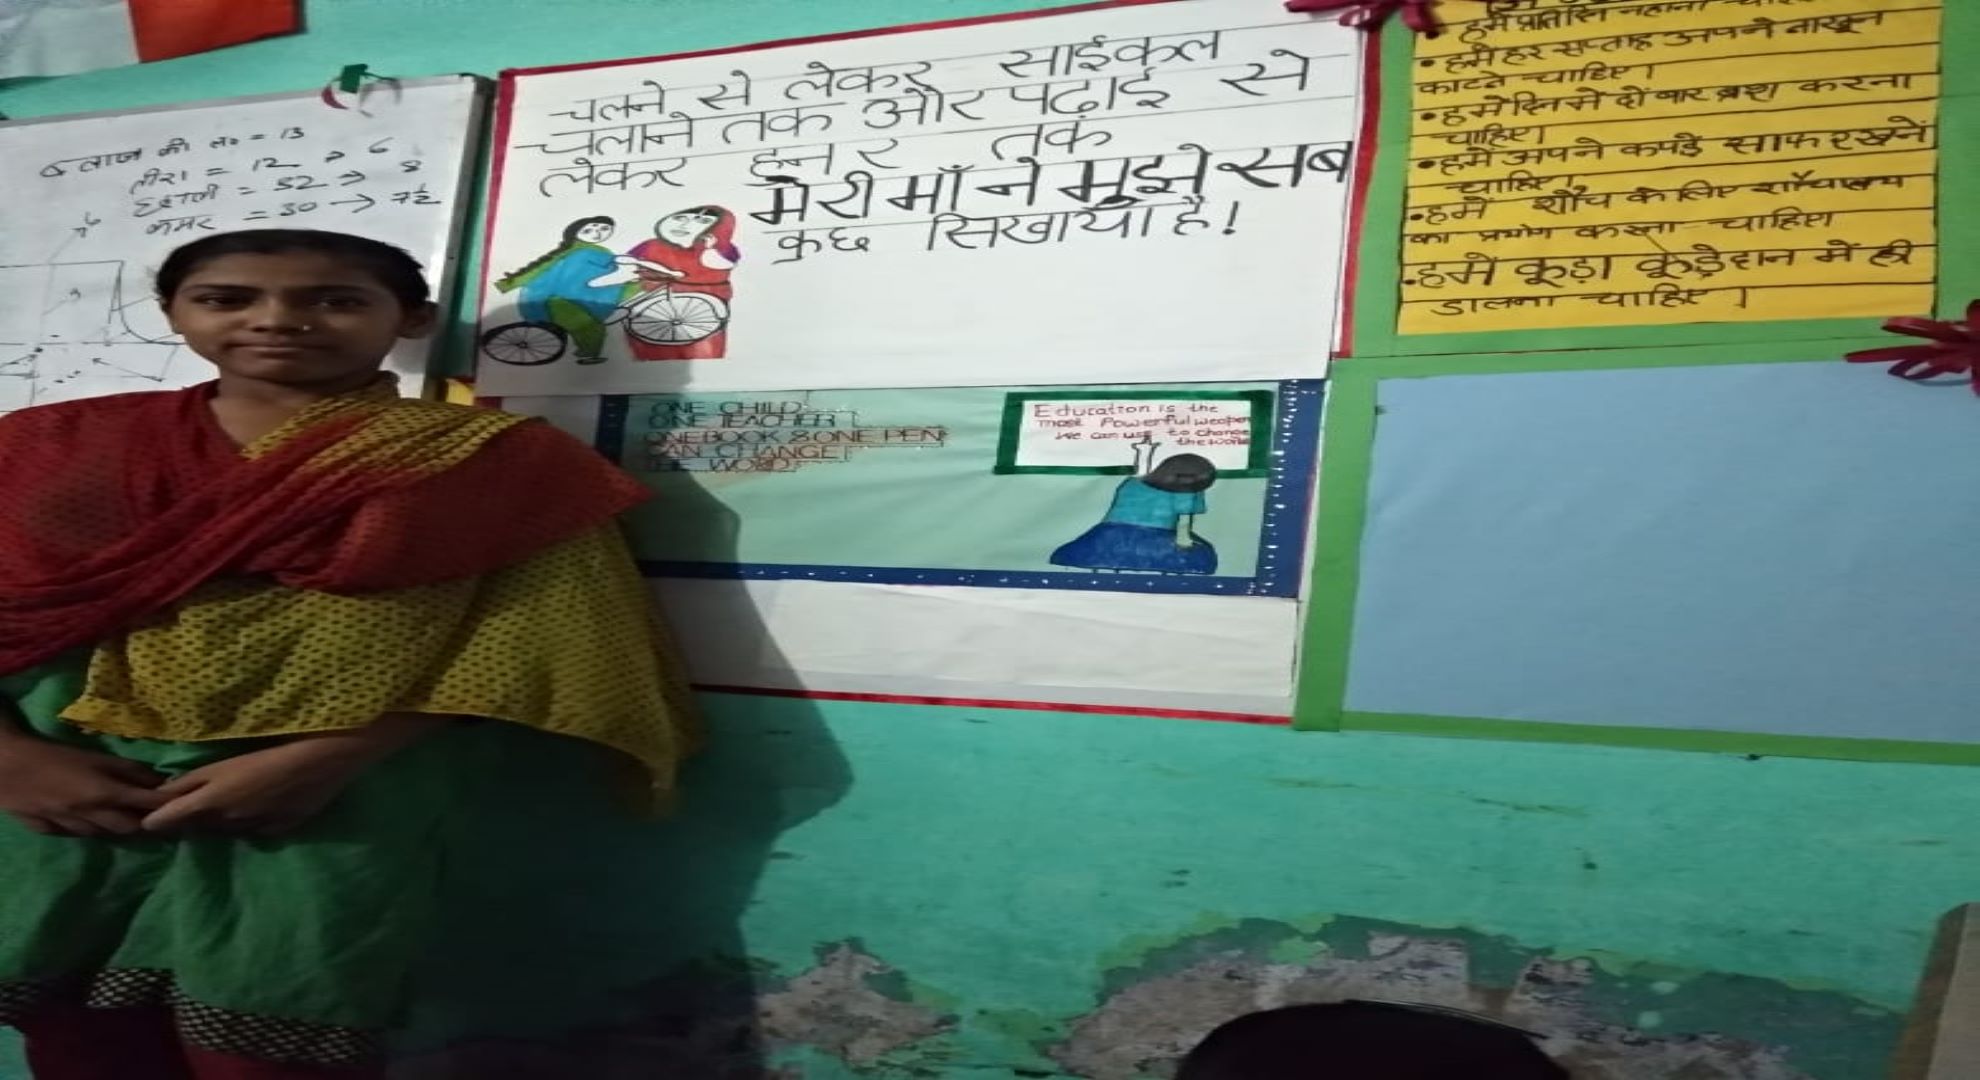 ब्लाउज की ल० = 13
तीरा = 12 → 6
छाती = 32 → 8
कमर = 30 → 7½
चलने से लेकर साईकल
चलाने तक और पढाई से
लेकर हुनर तक
मेरी माँ ने मुझे सब
कुछ सिखाया है!
ONE CHILD
ONE TEACHER
ONE BOOK & ONE PEN
CAN CHANGE
THE WORD
Education is the
most Powerful weapon
we can use to change
the world
• हमे प्रतिदिन नहाना
• हमे हर सप्ताह अपने नाखून
काटने चाहिए।
• हमे दिन मे दो बार ब्रश करना
चाहिए।
• हमे अपने कपड़े साफ रखने
चाहिए।
• हमें शौच के लिए शौचालय
का प्रयोग करना चाहिए।
• हमे कूड़ा कूड़ेदान में ही
डालना चाहिए।